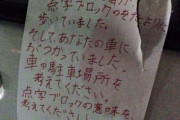 点字ブロックをたよりに
歩いていました。
そして、あなたの車に
ぶつかっていました。
車の駐車場所を
考えてください。
点字ブロックの意味を
考えてください。